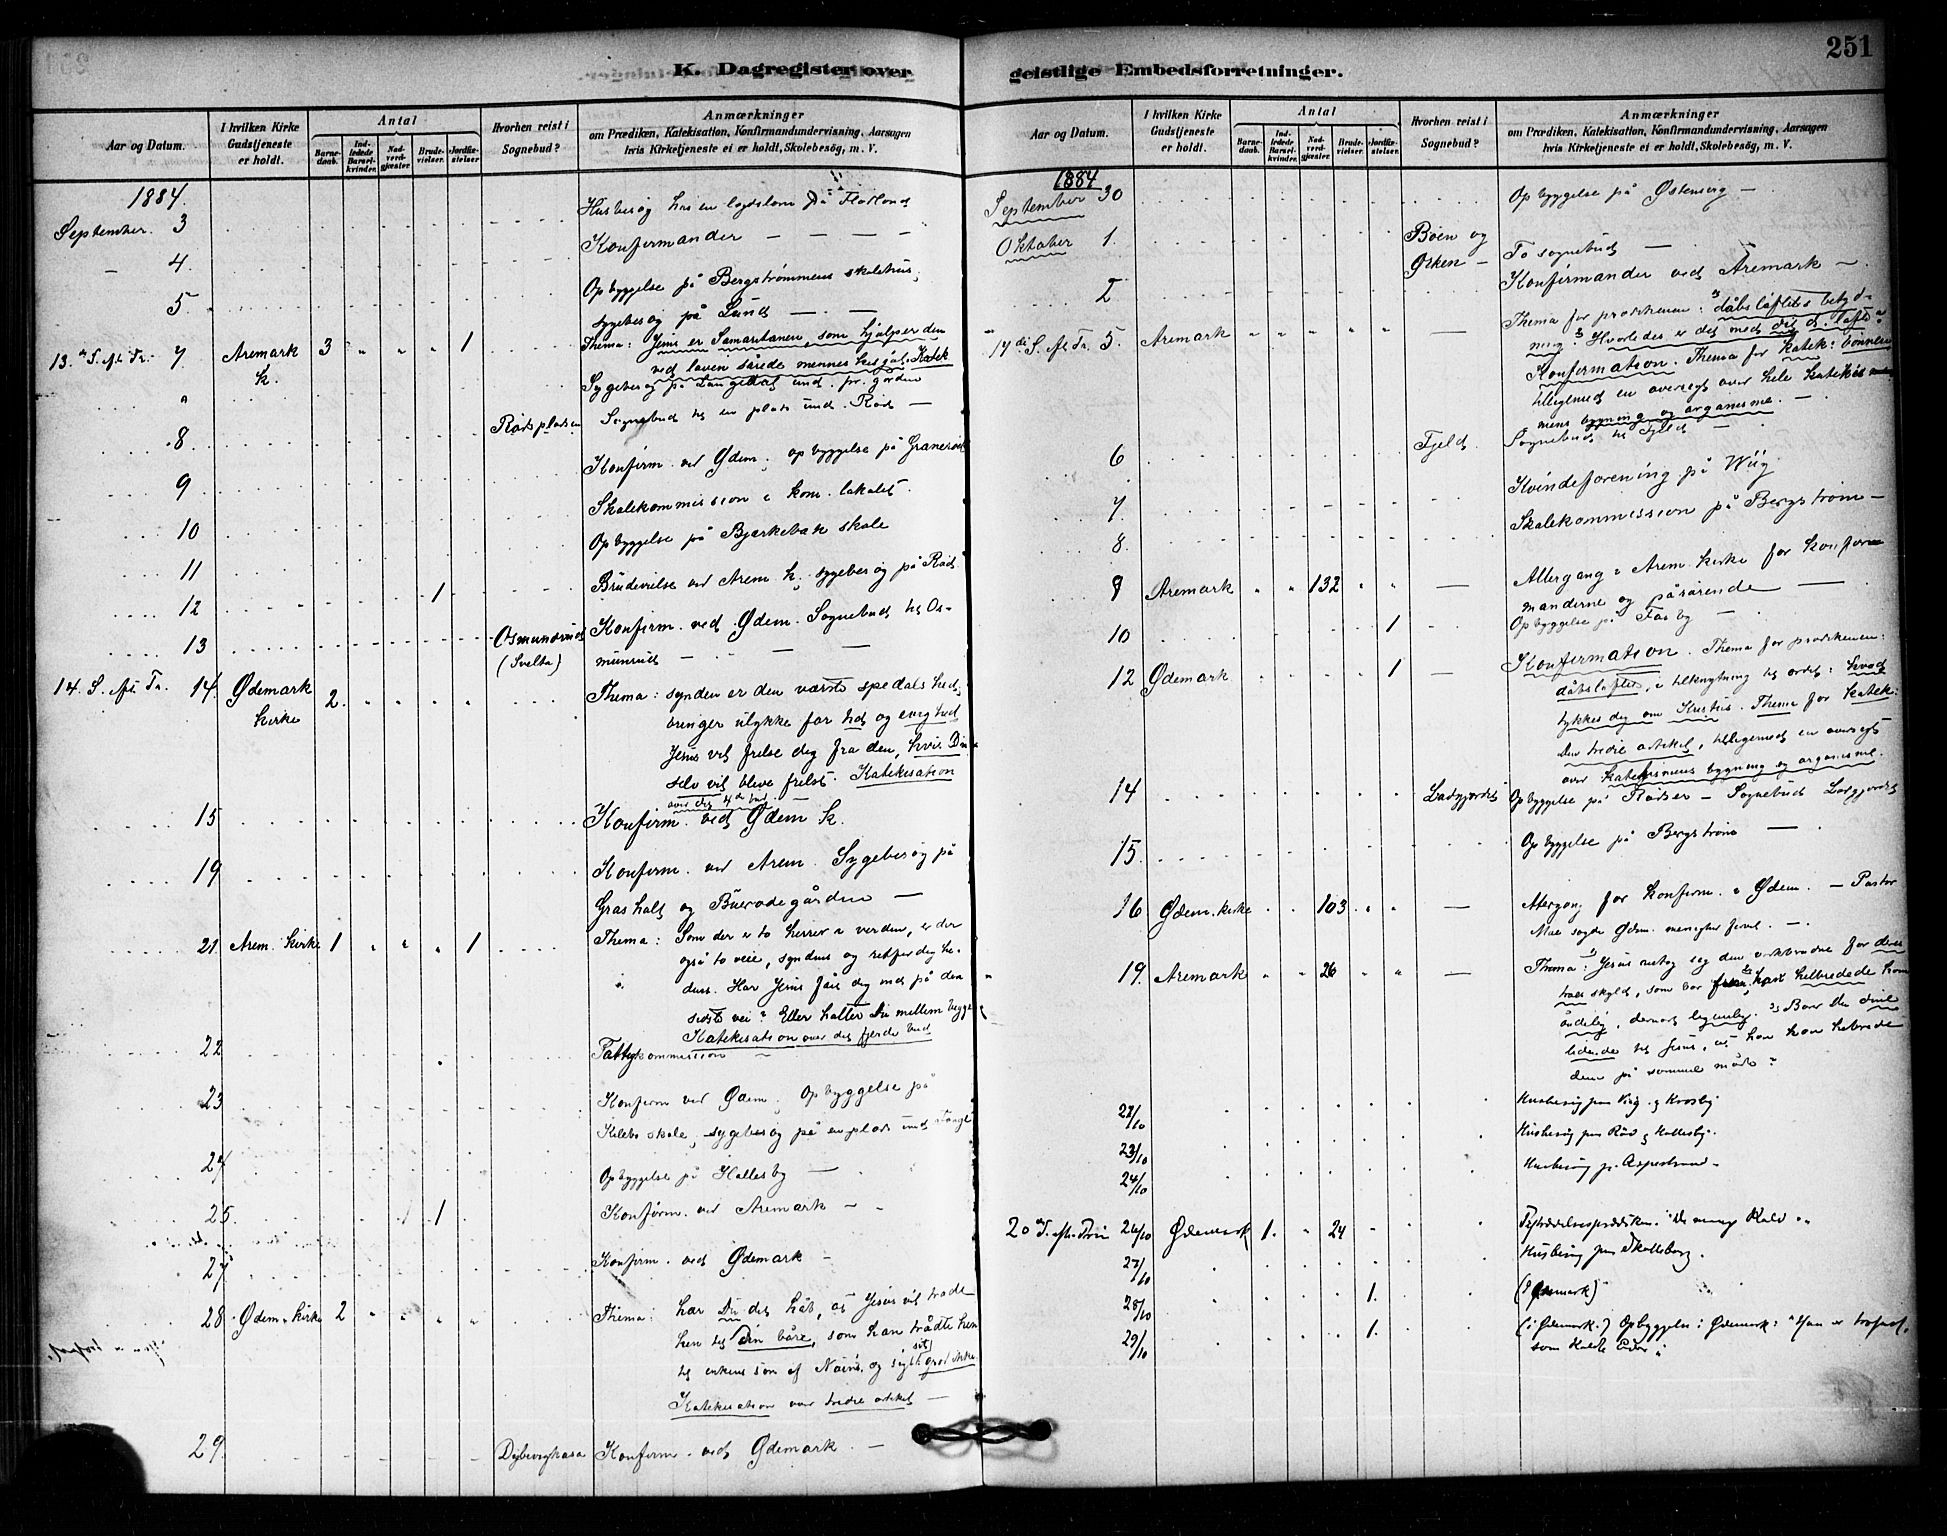 251
K. Dagregister over geistlige Embedsforretninger.
Aar og Datum.
I hvilken Kirke Gudstjeneste er holdt.
Antal
Barnedaab.
Indledede Barselkvinder.
Nadverdgjæster.
Brudevielser.
Jordfæstelser
Hvorhen reist i Sognebud?
Anmærkninger
om Prædiken, Katekisation, Konfirmandundervisning, Aarsagen
hvis Kirketjeneste ei er holdt, Skolebesög, m. V.
1884.
September. 3 Husbesøg hos en på
4 Konfirmander
5 Opbyggelse på Bergstrømmens skolehus,
sygebesøg på Lund
13. S. aft. Tr. 7 Aremark k. 3 " " " 1 Thema: Jesus er Samaritanen, som hjælper den
ved loven sårede menneskesjæl. Katek
" Sygebesøg på und. pr. gården
8 Rødspladsen Sognebud til en plads und. Rød —
9 Konfirm. ved Ødem., opbyggelse på
10 Skolekommission i kom. lokalet.
11 Opbyggelse på Bjørkebæk skole
12 1 Brudevielse ved Arem. k., sygebesøg på Rød
13 Osmundrud (Svelta) Konfirm. ved Ødem. Sognebud til Os-
munrud
14. S. aft. Tr. 14. Ødemark kirke 2 Thema: synden er den værste spedalskhed,
bringer ulykke for tid og evighed
Jesus vil frelse dig fra den, hvis Du
selv vil blive frelst. Katekisation
over det 4de bud.
15 Konfirm. ved Ødem. k.
19 Konfirm. ved Arem. Sygebesøg på
Grasholt og Buerødegården —
21 Arem. kirke 1 " " " 1 Thema: Som der er to herrer i verden, er der
også to veie, syndens og retfærdighe-
dens. Har Jesus fået dig med på den
sidste vei? Eller halter Du mellem begge?
Katekisation over det fjerde bud
22 Fattigkommission
23 Konfirm. ved Ødem., Opbyggelse på
skole, sygebesøg på en plads und.
24 Opbyggelse på Hallesby —
25. 1 Konfirm. ved Aremark
27 Konfirm. ved Ødemark —
28 Ødem. kirke 2 Thema: har Du det håb, at Jesus vil træde
hen til Din båre, som han trådte hen
til enkens søn af Nain's og sige: græd ikke
Katekisation over tredie artikel —
29 Konfirm. ved Ødemark. —
Aar og Datum.
I hvilken Kirke Gudstjeneste er holdt.
Antal
Barnedaab.
Indledede Barselkvinder.
Nadverdgjæster.
Brudevielser.
Jordfæstelser.
Hvorhen reist i Sognebud?
Anmærkninger
om Prædiken, Katekisation, Konfirmandundervisning, Aarsagen
hvis Kirketjeneste ei er holdt, Skolebesög, m. V.
1884
September 30 Opbyggelse på Østensvig —
Oktober 1. Bøen og Ørken — To sognebud —
2 Konfirmander ved Aremark —
17de S. aft. Tr. 5. Aremark " " " " " — Thema for prædikenen: dåbsløftets betyd-
ning. Hvorledes er det med dit d. løfte?
Konfirmation. Thema for katek: bønnen
tilligemed en oversigt over hele katekis-
mens bygning og organisme. —
6 Fjeld. Sognebud til Fjeld —
7 Kvindeforening på Wiig.
8. Skolekommission på Bergstrøm —
8 Aremark " " 132 " " — Altergang i Arem. kirke for konfir-
manderne og pårørende —
10 1 Opbyggelse på Fosby —
12 Ødemark 1 — Konfirmation. Thema for prædikenen:
dåbsløftet, i tilknytning til ordet: hvad
tykkes dig om Kristus. Thema for katek:
den tredie artikel, tilligemed en oversigt
over katekismens bygning og organisme.
14 Ladegjordet Opbyggelse på Rødser — Sognebud Ladegjordet
15. Opbyggelse på Bergstrøm —
16 Ødem. kirke 103 " " — Altergang for konfirm. i Ødem. — Pastor
Moe sagde Ødem. menighet farvel. —
19. Aremark " " 26 " " — Thema: Jesus antog sig den værkbrudne for deres
troes skyld, som bar ham, han helbredede ham
åndelig, dernæst legemlig. 2) Bær du dine
lidende til Jesus, at han kan helbrede
dem på samme måde?
22/10 Husbesøg paa Viig og Krosby
23/10 Husbesøg paa Rød og Hallesby.
24/10 Husbesøg p. Aspestrand.
20 S. efter Trin 26/10 Ødemark 1. " 24 Tiltrædelsesprædiken. "De mange Kald".
27/10 Husbesøg paa Skolleborg.
28/10 1. (i Ødemark)
29/10 1. (i Ødemark.) Opbyggelse i Ødemark: "Han er trofast,
som kaldte Eder".